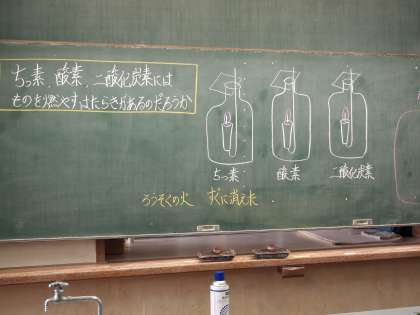 ちっ素、酸素、二酸化炭素には
ものを燃やすはたらきがあるのだろうか
ちっ素
酸素
二酸化炭素
ろうそくの火 すぐに消えた